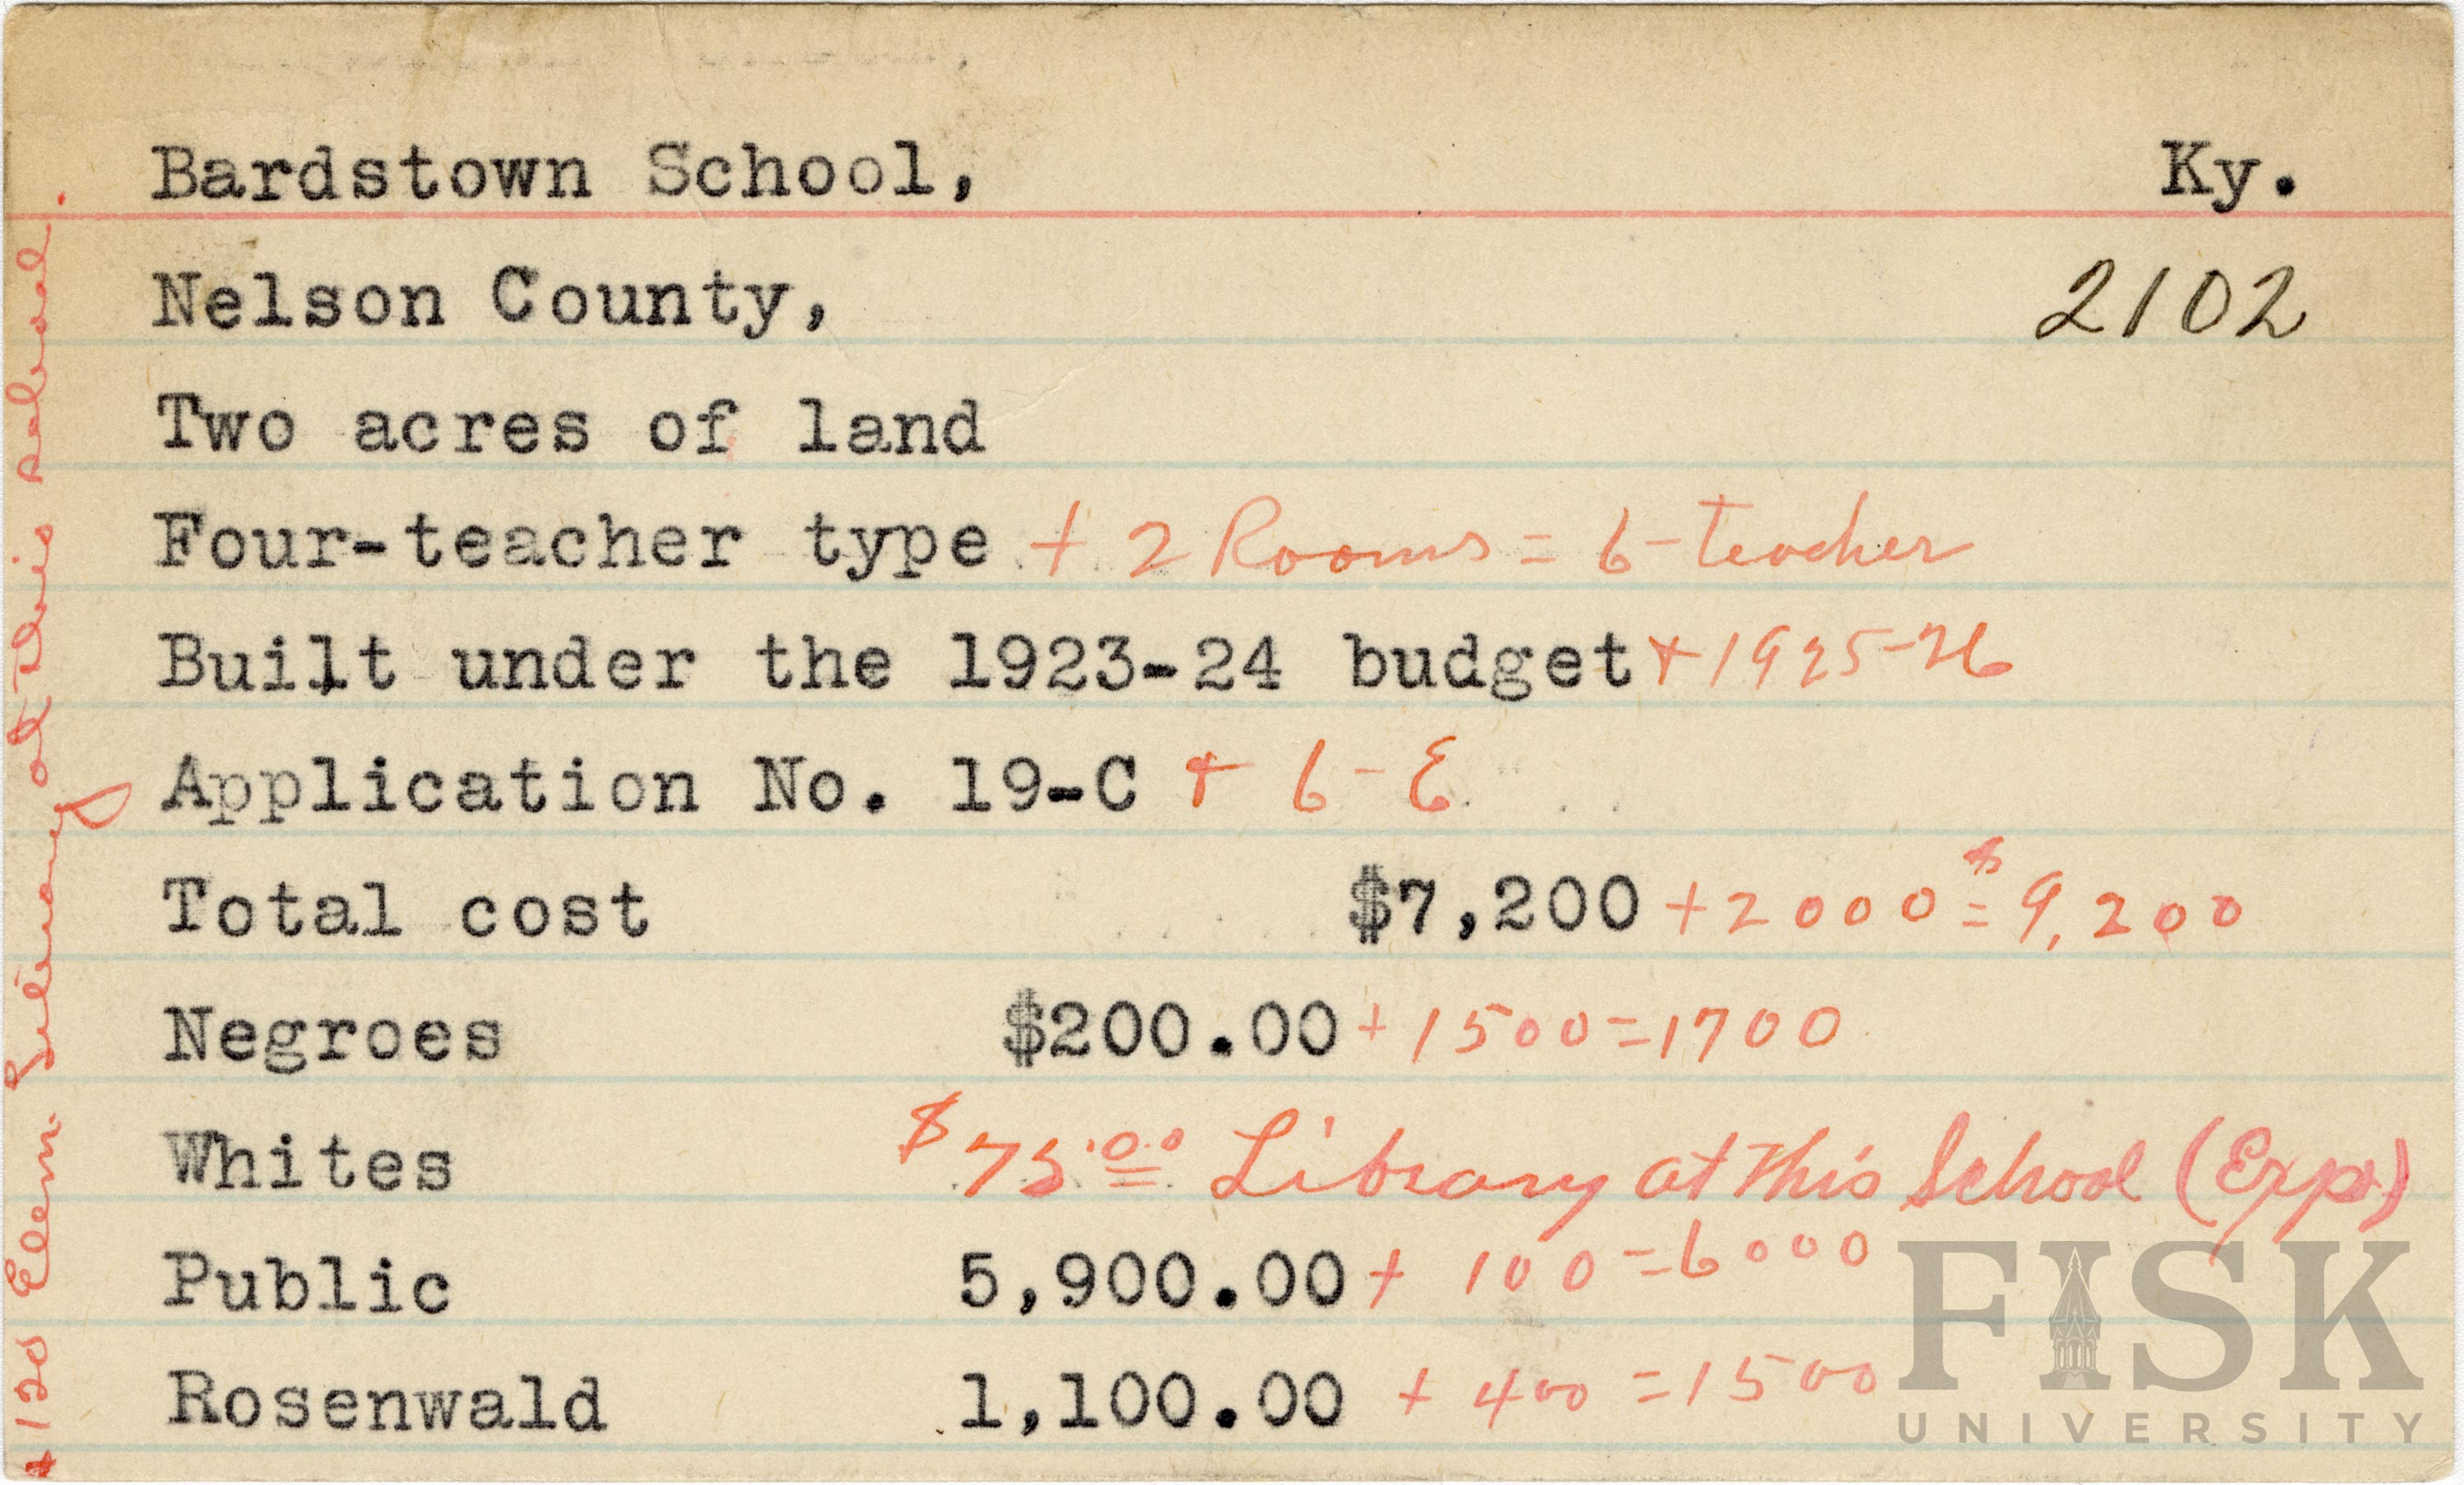 Bardstown School, Ky.
Nelson County, 2102
Two acres of land
Four-teacher type + 2 Rooms = 6-teacher
Built under the 1923-24 budget + 1925-26
Application No. 19-C + 6-E
Total cost $7,200 + 2000 = $9,200
Negroes $200.00 + 1500 = 1700
Whites $75.00 Library at this School (Exp)
Public 5,900.00 + 100 = 6000
Rosenwald 1,100.00 + 400 = 1500
$120 Elem Library at this school.
FISK
UNIVERSITY